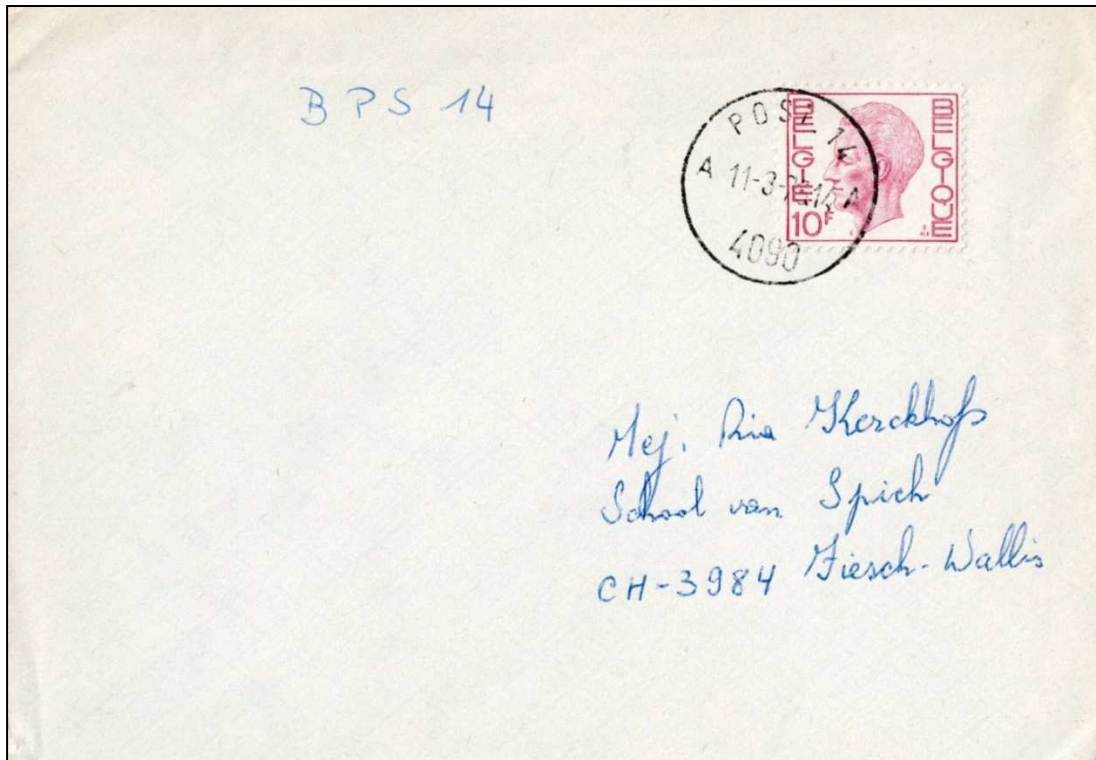 BPS 14
POST 14
A 11-3- 14 A
4090
BELGIE
BELGIQUE
10F
Mej. Ria Kerckhofs
School van Spich
CH-3984 Fiesch-Wallis